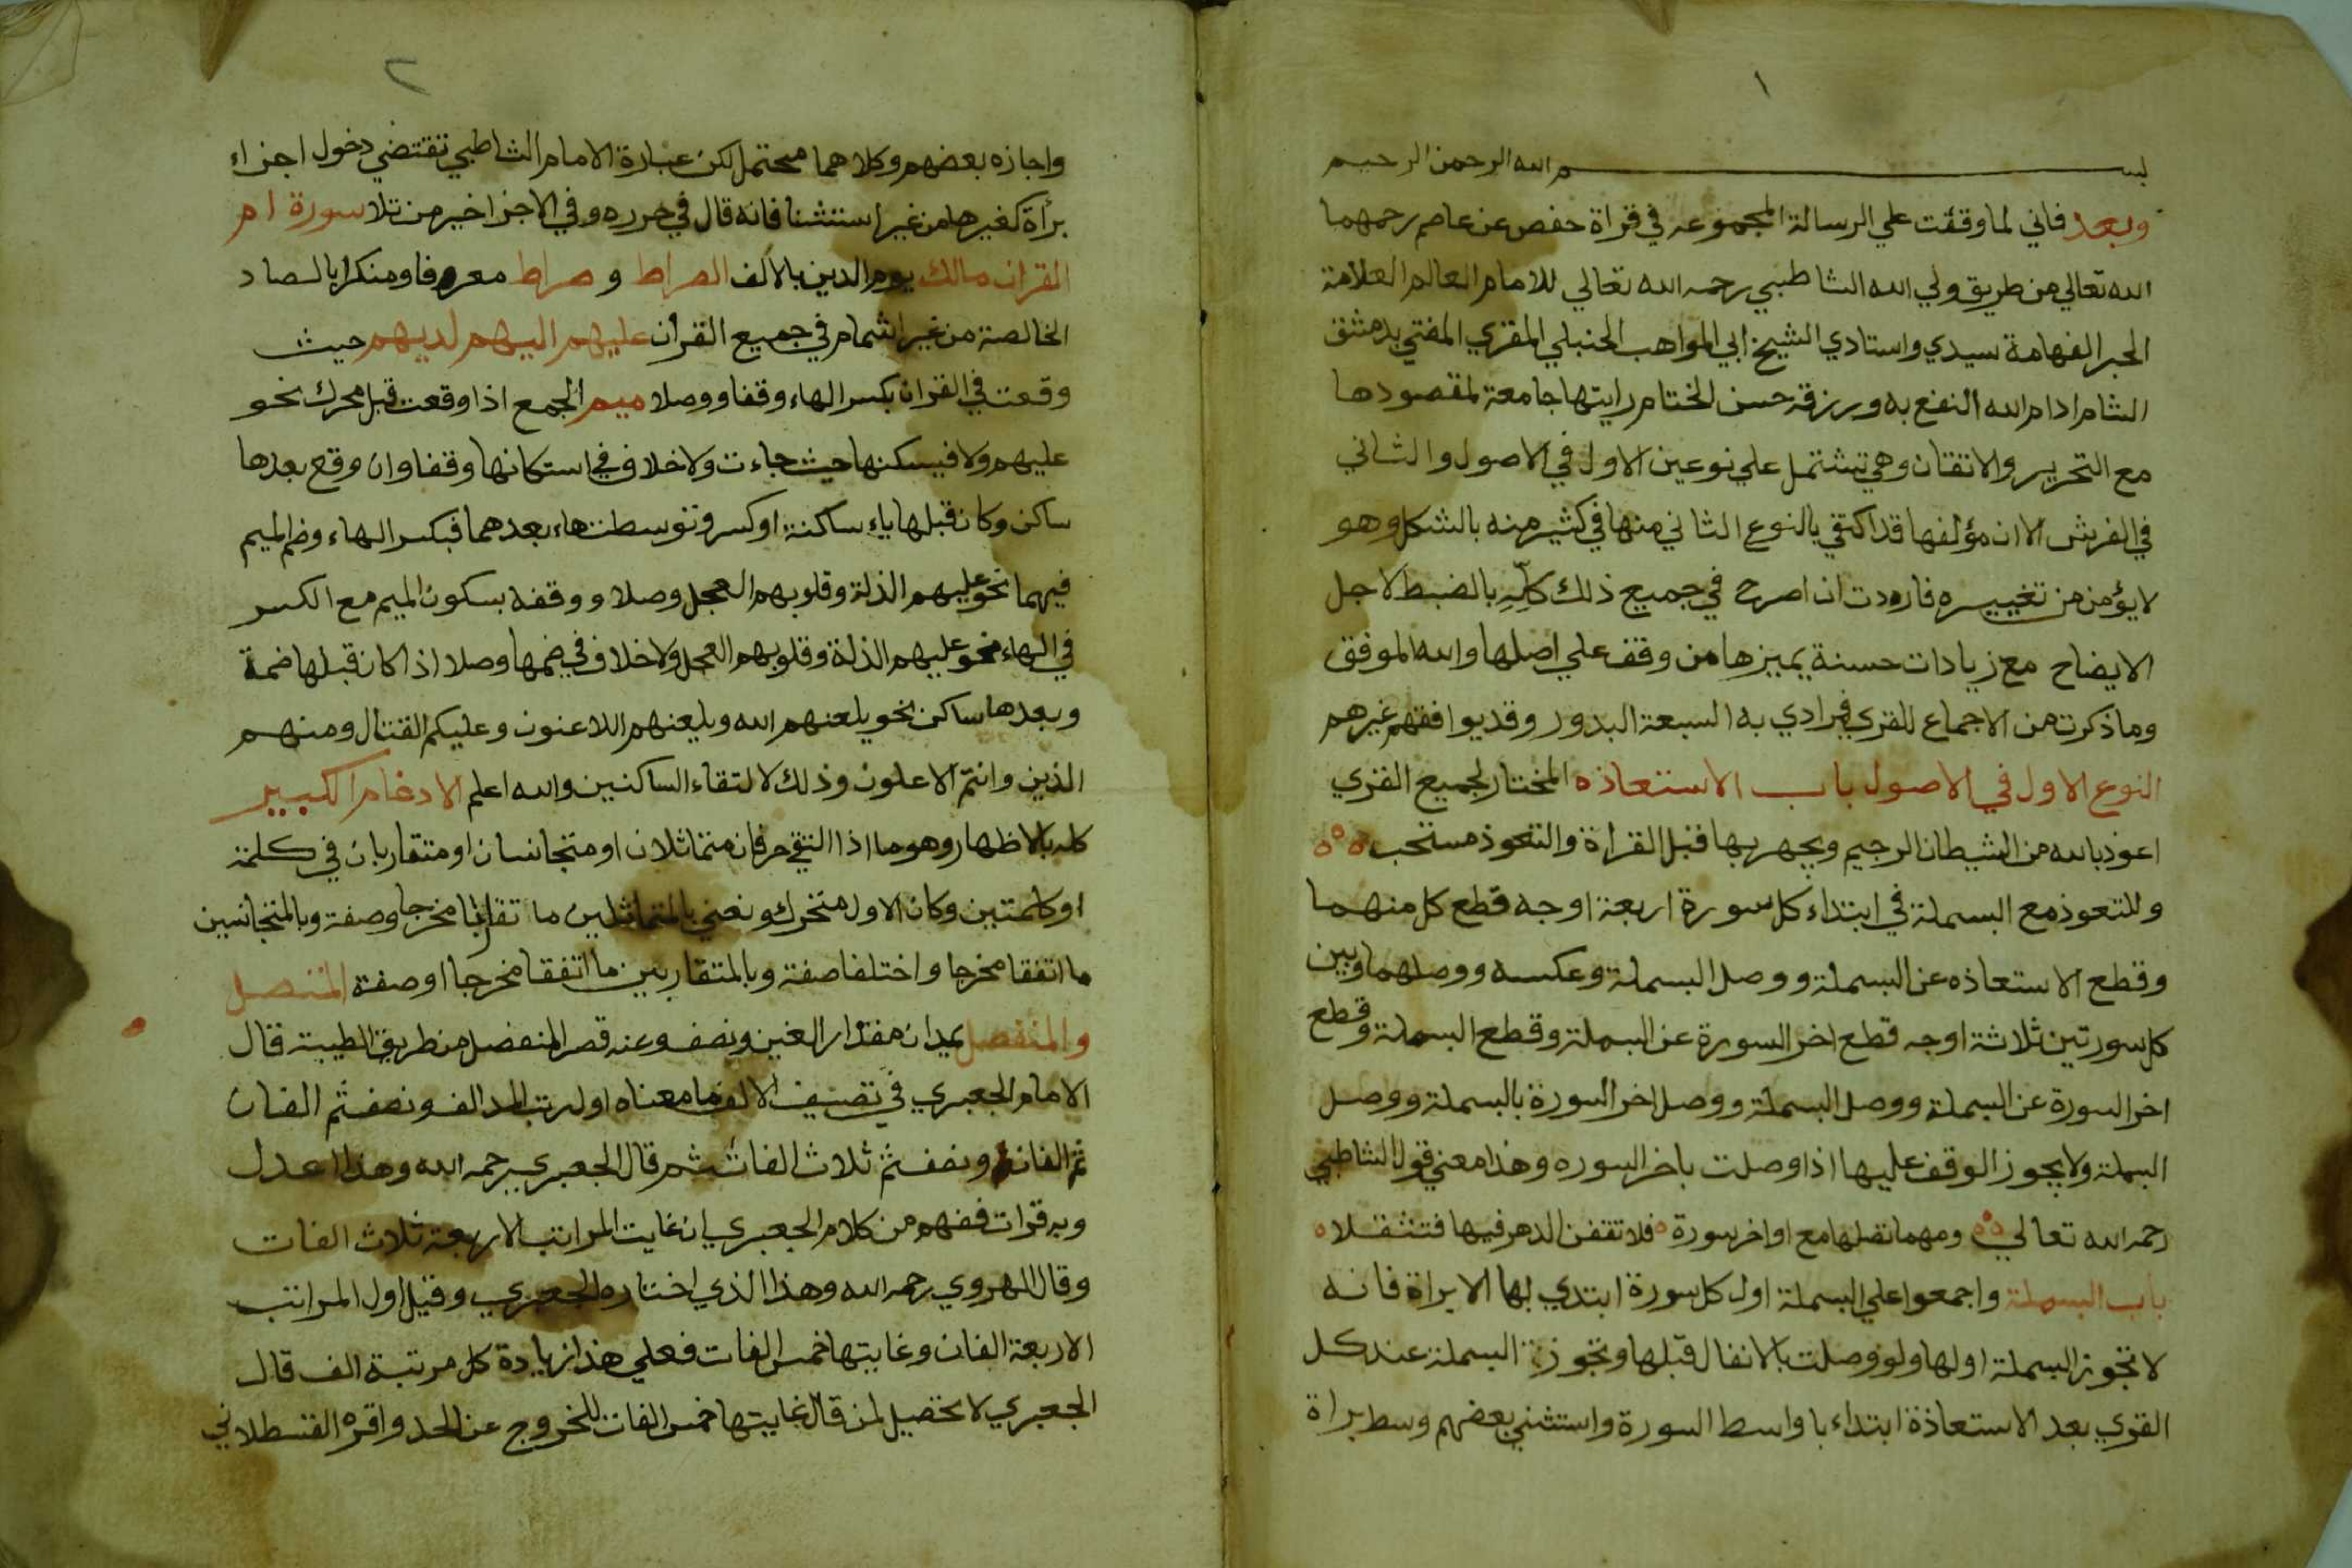 ١
بسم الله الرحمن الرحيم
وبعد فاني لما وقفت علي الرسالة المجموعه في قراة حفص عن عاصم رحمهما
الله تعالي من طريق ولي الله الشاطبي رحمه الله تعالي للامام العالم العلامة
الحبر الفهامة سيدي واستادي الشيخ ابي المواهب الحنبلي المقري المفتي بدمشق
الشام ادام الله النفع به ورزقه حسن الختام رايتها جامعة لمقصودها
مع التحرير والاتقان وهي تشتمل علي نوعين الاول في الاصول والثاني
في الفرش الا ان مؤلفها قد اكتفي بالنوع الثاني منها في كثير منه بالشكل وهو
لا يؤمن من تغييره فاردت ان اصرح في جميع ذلك كله بالضبط لاجل
الايضاح مع زيادات حسنة يميزها من وقف علي اصلها والله الموفق
وما ذكرت من الاجماع للقري فمرادي به السبعة البدور وقد يوافقهم غيرهم
النوع الاول في الاصول باب الاستعاذه المختار لجميع القري
اعوذ بالله من الشيطان الرجيم ويجهر بها قبل القراة والتعوذ مستحب
وللتعوذ مع البسملة في ابتداء كل سورة اربعة اوجه قطع كل منهما
وقطع الاستعاذه عن البسملة ووصل البسملة وعكسه ووصلهما وبين
كل سورتين ثلاثة اوجه قطع اخر السورة عن البسملة وقطع البسملة وقطع
اخر السورة عن البسملة ووصل البسملة ووصل اخر السورة بالبسملة ووصل
البسملة ولا يجوز الوقف عليها اذا وصلت باخر السوره وهذا معني قول الشاطبي
رحمه الله تعالي ومهما تصلها مع اواخر سورة فلا تقفن الدهر فيها فتثقلا
باب البسملة واجمعوا علي البسملة اول كل سورة ابتدي بها الا براة فانه
لا تجوز البسملة اولها ولو وصلت بالانفال قبلها وتجوز البسملة عند كل
القري بعد الاستعاذة ابتداء باواسط السورة واستثني بعضهم وسط براة
٢
واجازه بعضهم وكلاهما محتمل لكن عبارة الامام الشاطبي تقتضي دخول اجزاء
برأة كغيرها من غير استثنا فانه قال في حرزه وفي الاجزا خير من تلا سورة ام
القران مالك يوم الدين بالالف الصراط و صراط معروفا ومنكرا بالصاد
الخالصة من غير اشمام في جميع القران عليهم اليهم لديهم حيث
وقعت في القران بكسر الهاء وقفا ووصلا ميم الجمع اذا وقعت قبل محرك نحو
عليهم ولا فيسكنها حيث جاءت ولا خلاف في اسكانها وقفا وان وقع بعدها
ساكن وكان قبلها ياء ساكنة او كسر وتوسطت هاء بعدهما فبكسر الهاء وضم الميم
فيهما نحو عليهم الذلة وقلوبهم العجل وصلا ووقفه بسكون الميم مع الكسر
في الهاء نحو عليهم الذلة وقلوبهم العجل ولا خلاف في ضمها وصلا اذا كان قبلها ضمة
وبعدها ساكن نحو يلعنهم الله ويلعنهم اللاعنون وعليكم القتال ومنهم
الذين وانتم الاعلون وذلك لالتقاء الساكنين والله اعلم الادغام الكبير
كله بالاظهار وهو ما اذا التقي حرفان متماثلان او متجانسان او متقاربان في كلمة
او كلمتين وكان الاول متحرك ونعني بالمتماثلين ما مخرجا وصفة وبالمتجانسين
ما اتفقا مخرجا واختلفا صفة وبالمتقاربين ما اتفقا مخرجا او صفة المتصل
والمنفصل يمدان مقدار الفين ونصف وعنه قصر المنفصل من طريق الطيبة قال
الامام الجعبري في تصنيف الالف ما معناه اول رتب المد الف ونصف ثم الفان
ثم الفان ونصف ثم ثلاث الفات ثم قال الجعبري رحمه الله وهذا اعدل
وبه قرات ففهم من كلام الجعبري ان غايت المراتب الاربعة ثلاث الفات
وقال الهروي رحمه الله وهذا الذي اختاره الجعبري وقيل اول المراتب
الاربعة الفان وغايتها خمس الفات فعلي هذا زيادة كل مرتبة الف قال
الجعبري لا تحصيل لمن قال غايتها خمس الفات للخروج عن الحد واقره القسطلاني